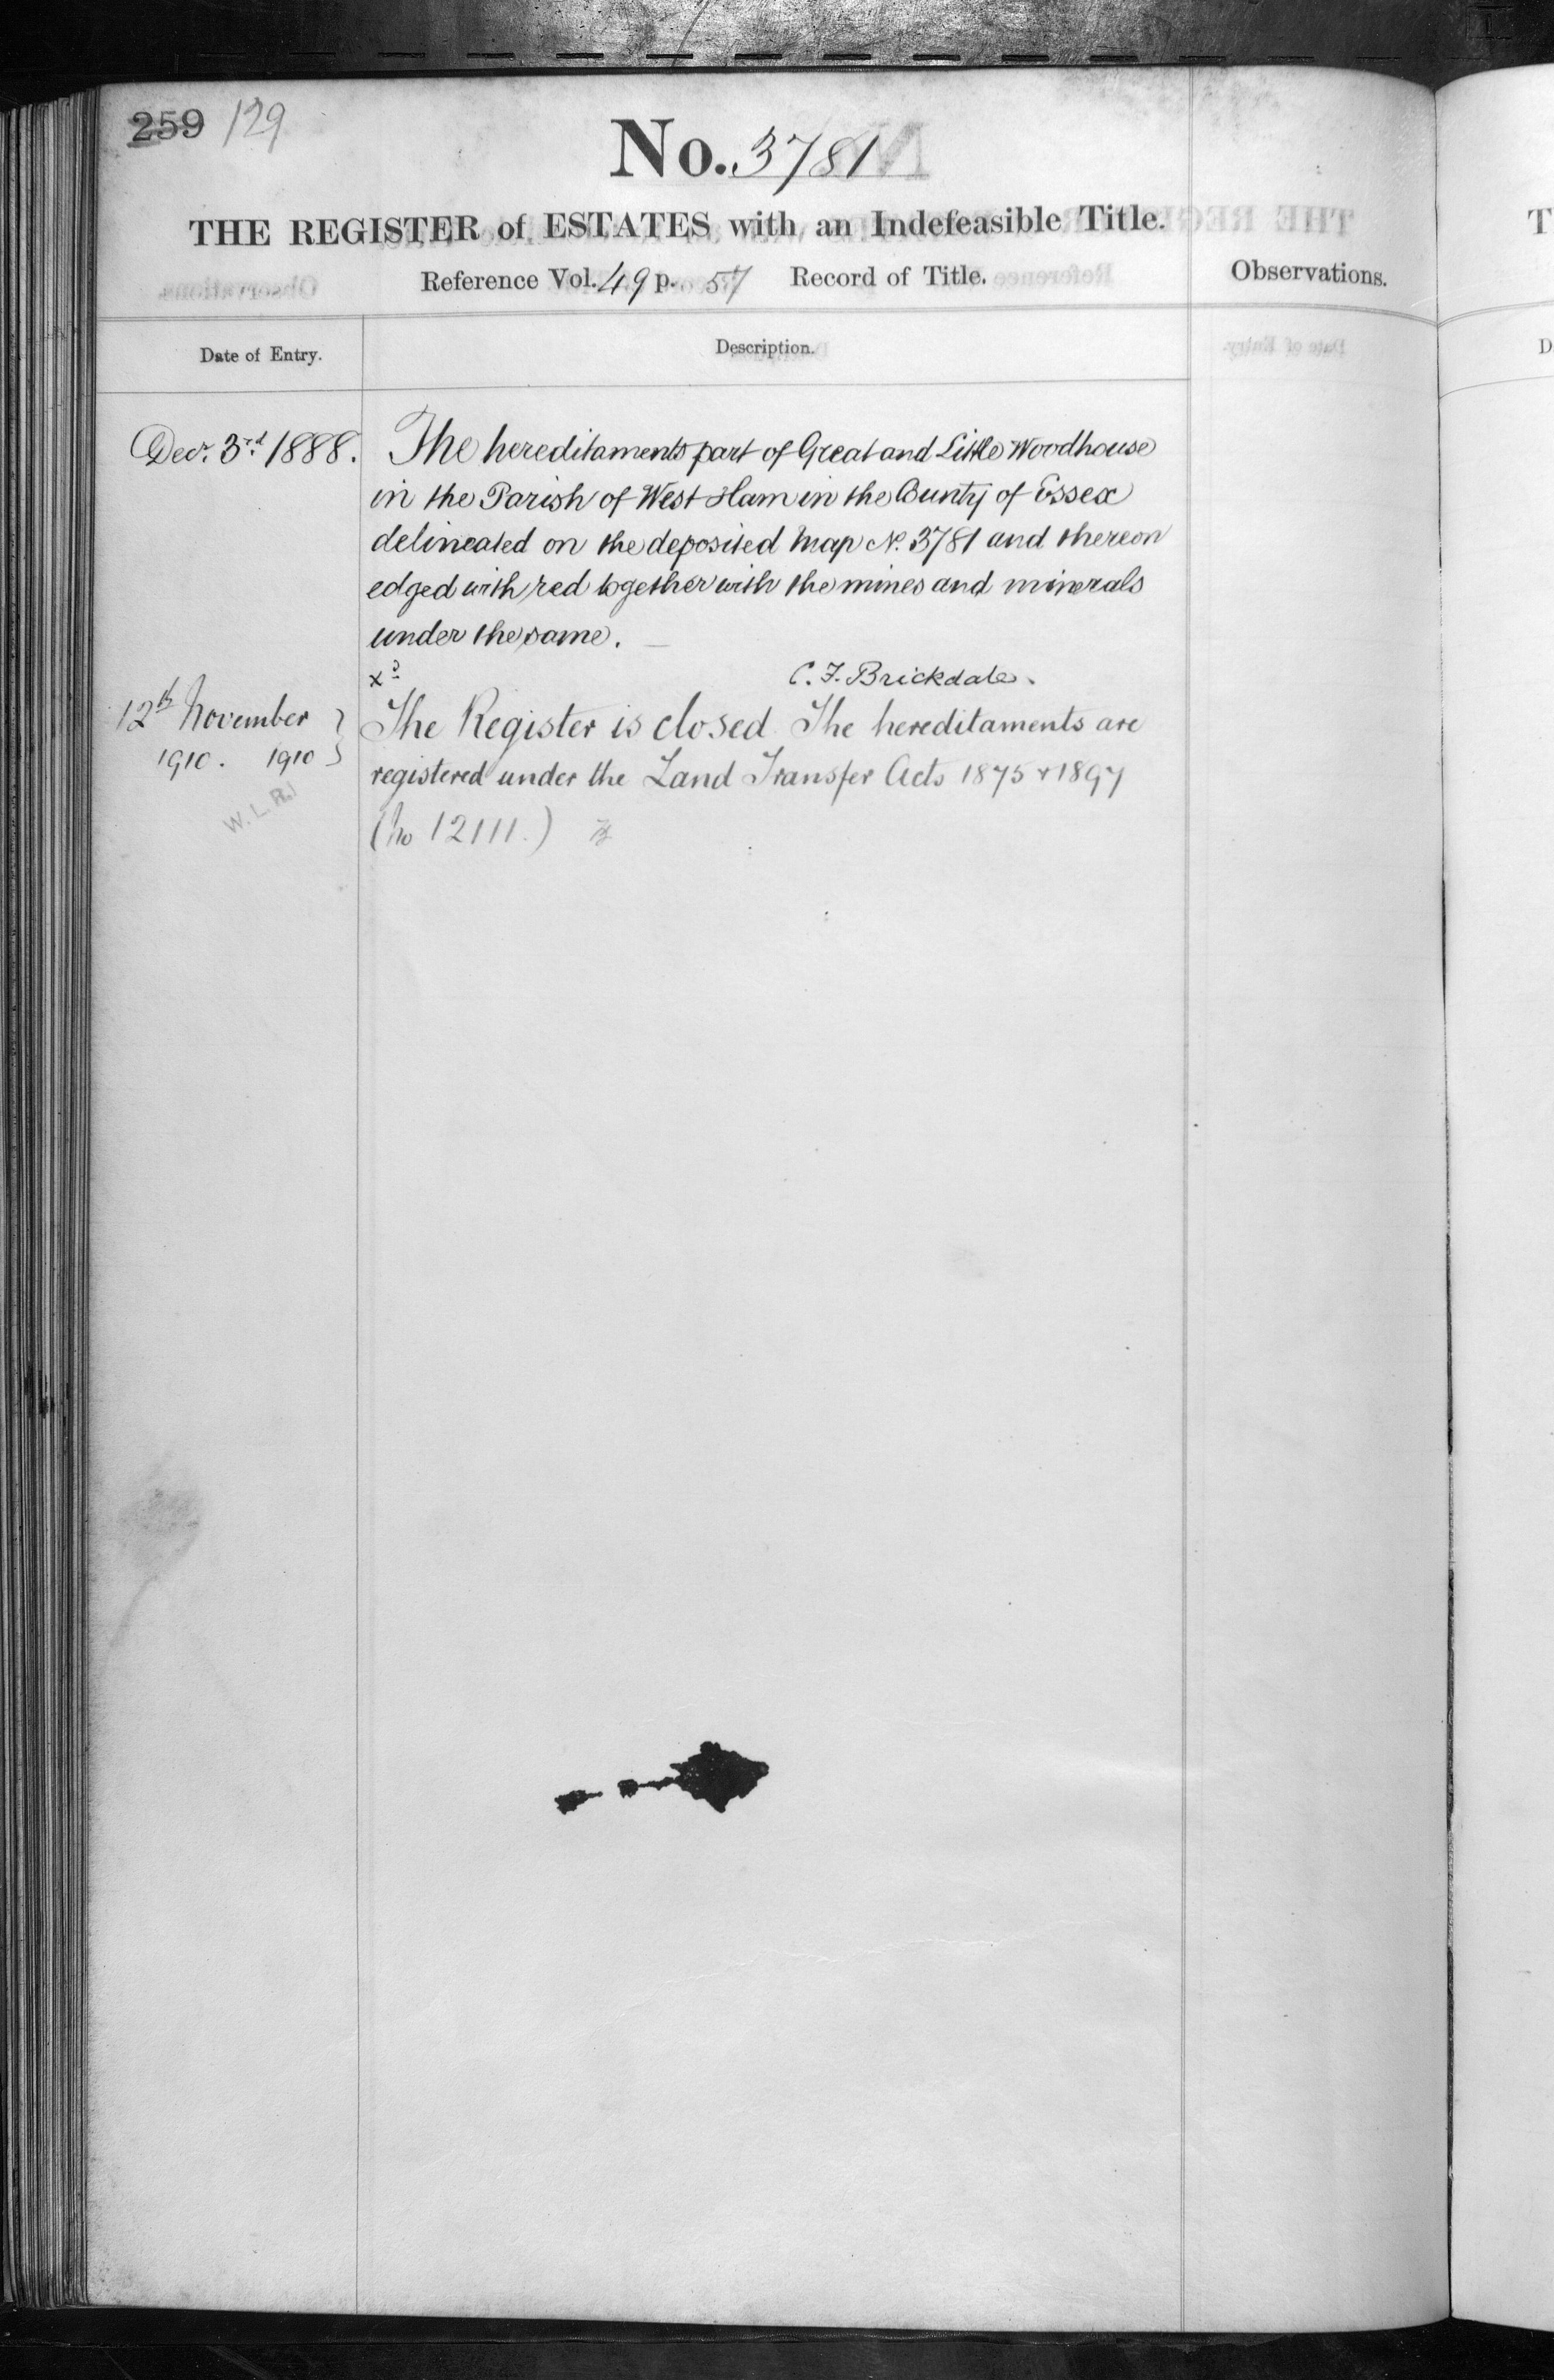 259 129
No. 3781
THE REGISTER of ESTATES with an Indefeasible Title.
Reference Vol. 49 p. 57 Record of Title.
Observations.
Date of Entry.
Description.
Decr. 3rd 1888. The hereditaments part of Great and Little Woodhouse
in the Parish of West Ham in the County of Essex
delineated on the deposited Map No. 3781 and thereon
edged with red together with the mines and minerals
under the same.
xd C. F. Brickdale.
12th November The Register is closed. The hereditaments are
1910. 1910 registered under the Land Transfer Acts 1875 & 1897
W. L. R. (No 12111.)